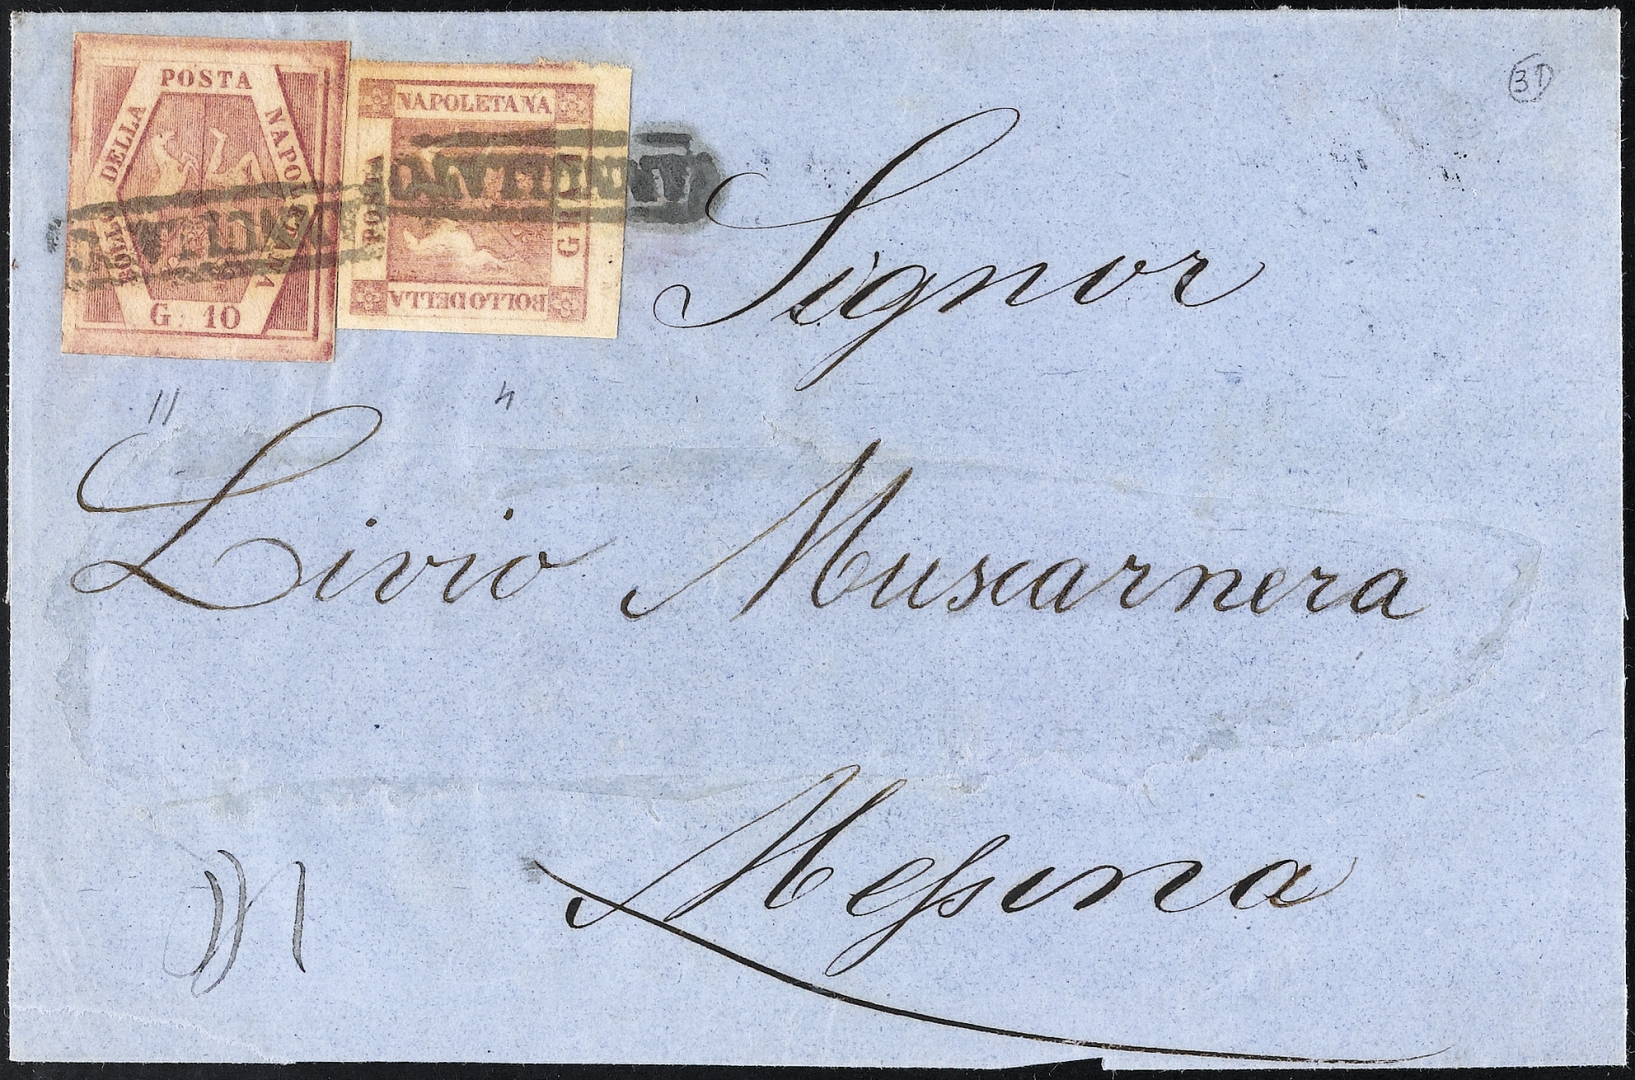 BOLLO DELLA POSTA NAPOLETANA
G. 10
NAPOLETANA
POSTA
BOLLO DELLA
ANNULLATO
ANNULLATO
31
Signor
11
4
Livio Muscarnera
Messina